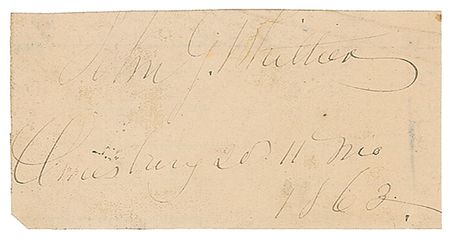 John G. Whittier
Amesbury 20th 11 mo
1863.